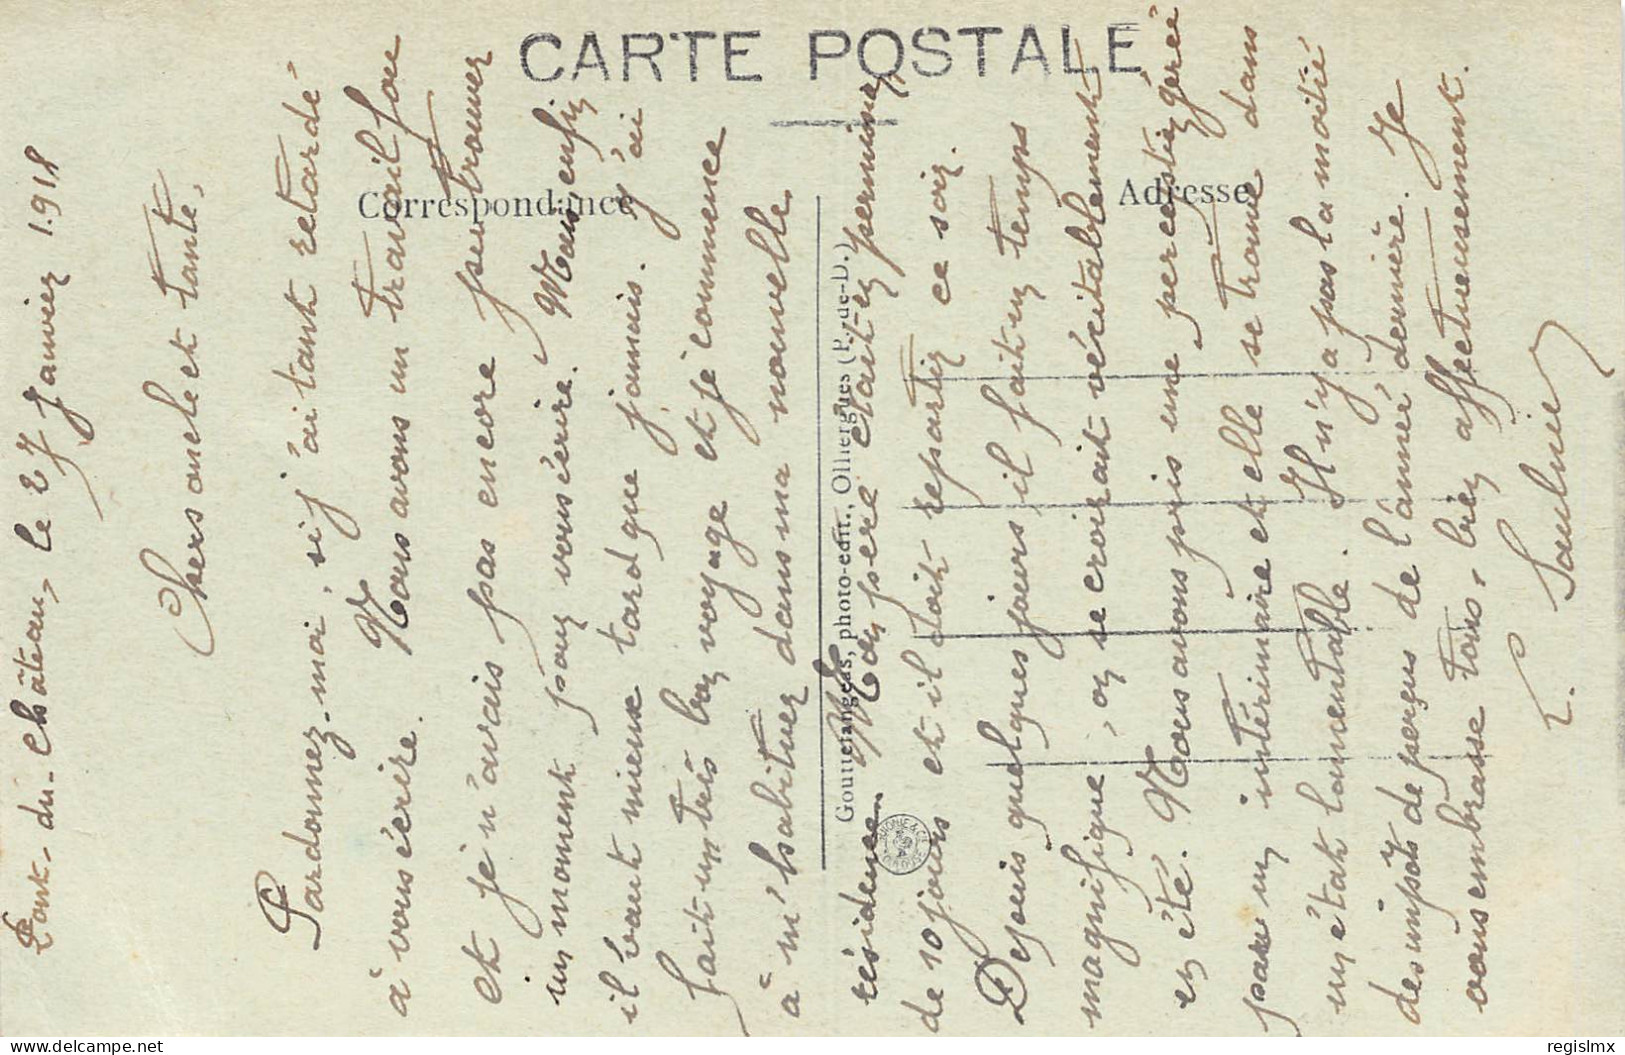 CARTE POSTALE
Correspondance
Adresse
Gouttefangeas, photo-édit., Olliergues (P.-de-D.)
Pont-du-Château, le 27 Janvier 1918
Chers oncle et tante,
Pardonnez-moi, si j'ai tant retardé
à vous écrire. Nous avons un travail fou
et je n'avais pas encore pu trouver
un moment pour vous écrire. Mais enfin
il vaut mieux tard que jamais. J'ai
fait un très bon voyage et je commence
à m'habituer dans ma nouvelle
résidence. Mon père était en permission
de 10 jours et il doit repartir ce soir.
Depuis quelques jours il fait un temps
magnifique, on se croirait véritablement
en été. Nous avons pris une perception gérée
par un intérimaire et elle se trouve dans
un état lamentable. Il n'y a pas la moitié
des impôts de perçus de l'année dernière. Je
vous embrasse tous, bien affectueusement.
L. Saulnier
delcampe.net
regislmx